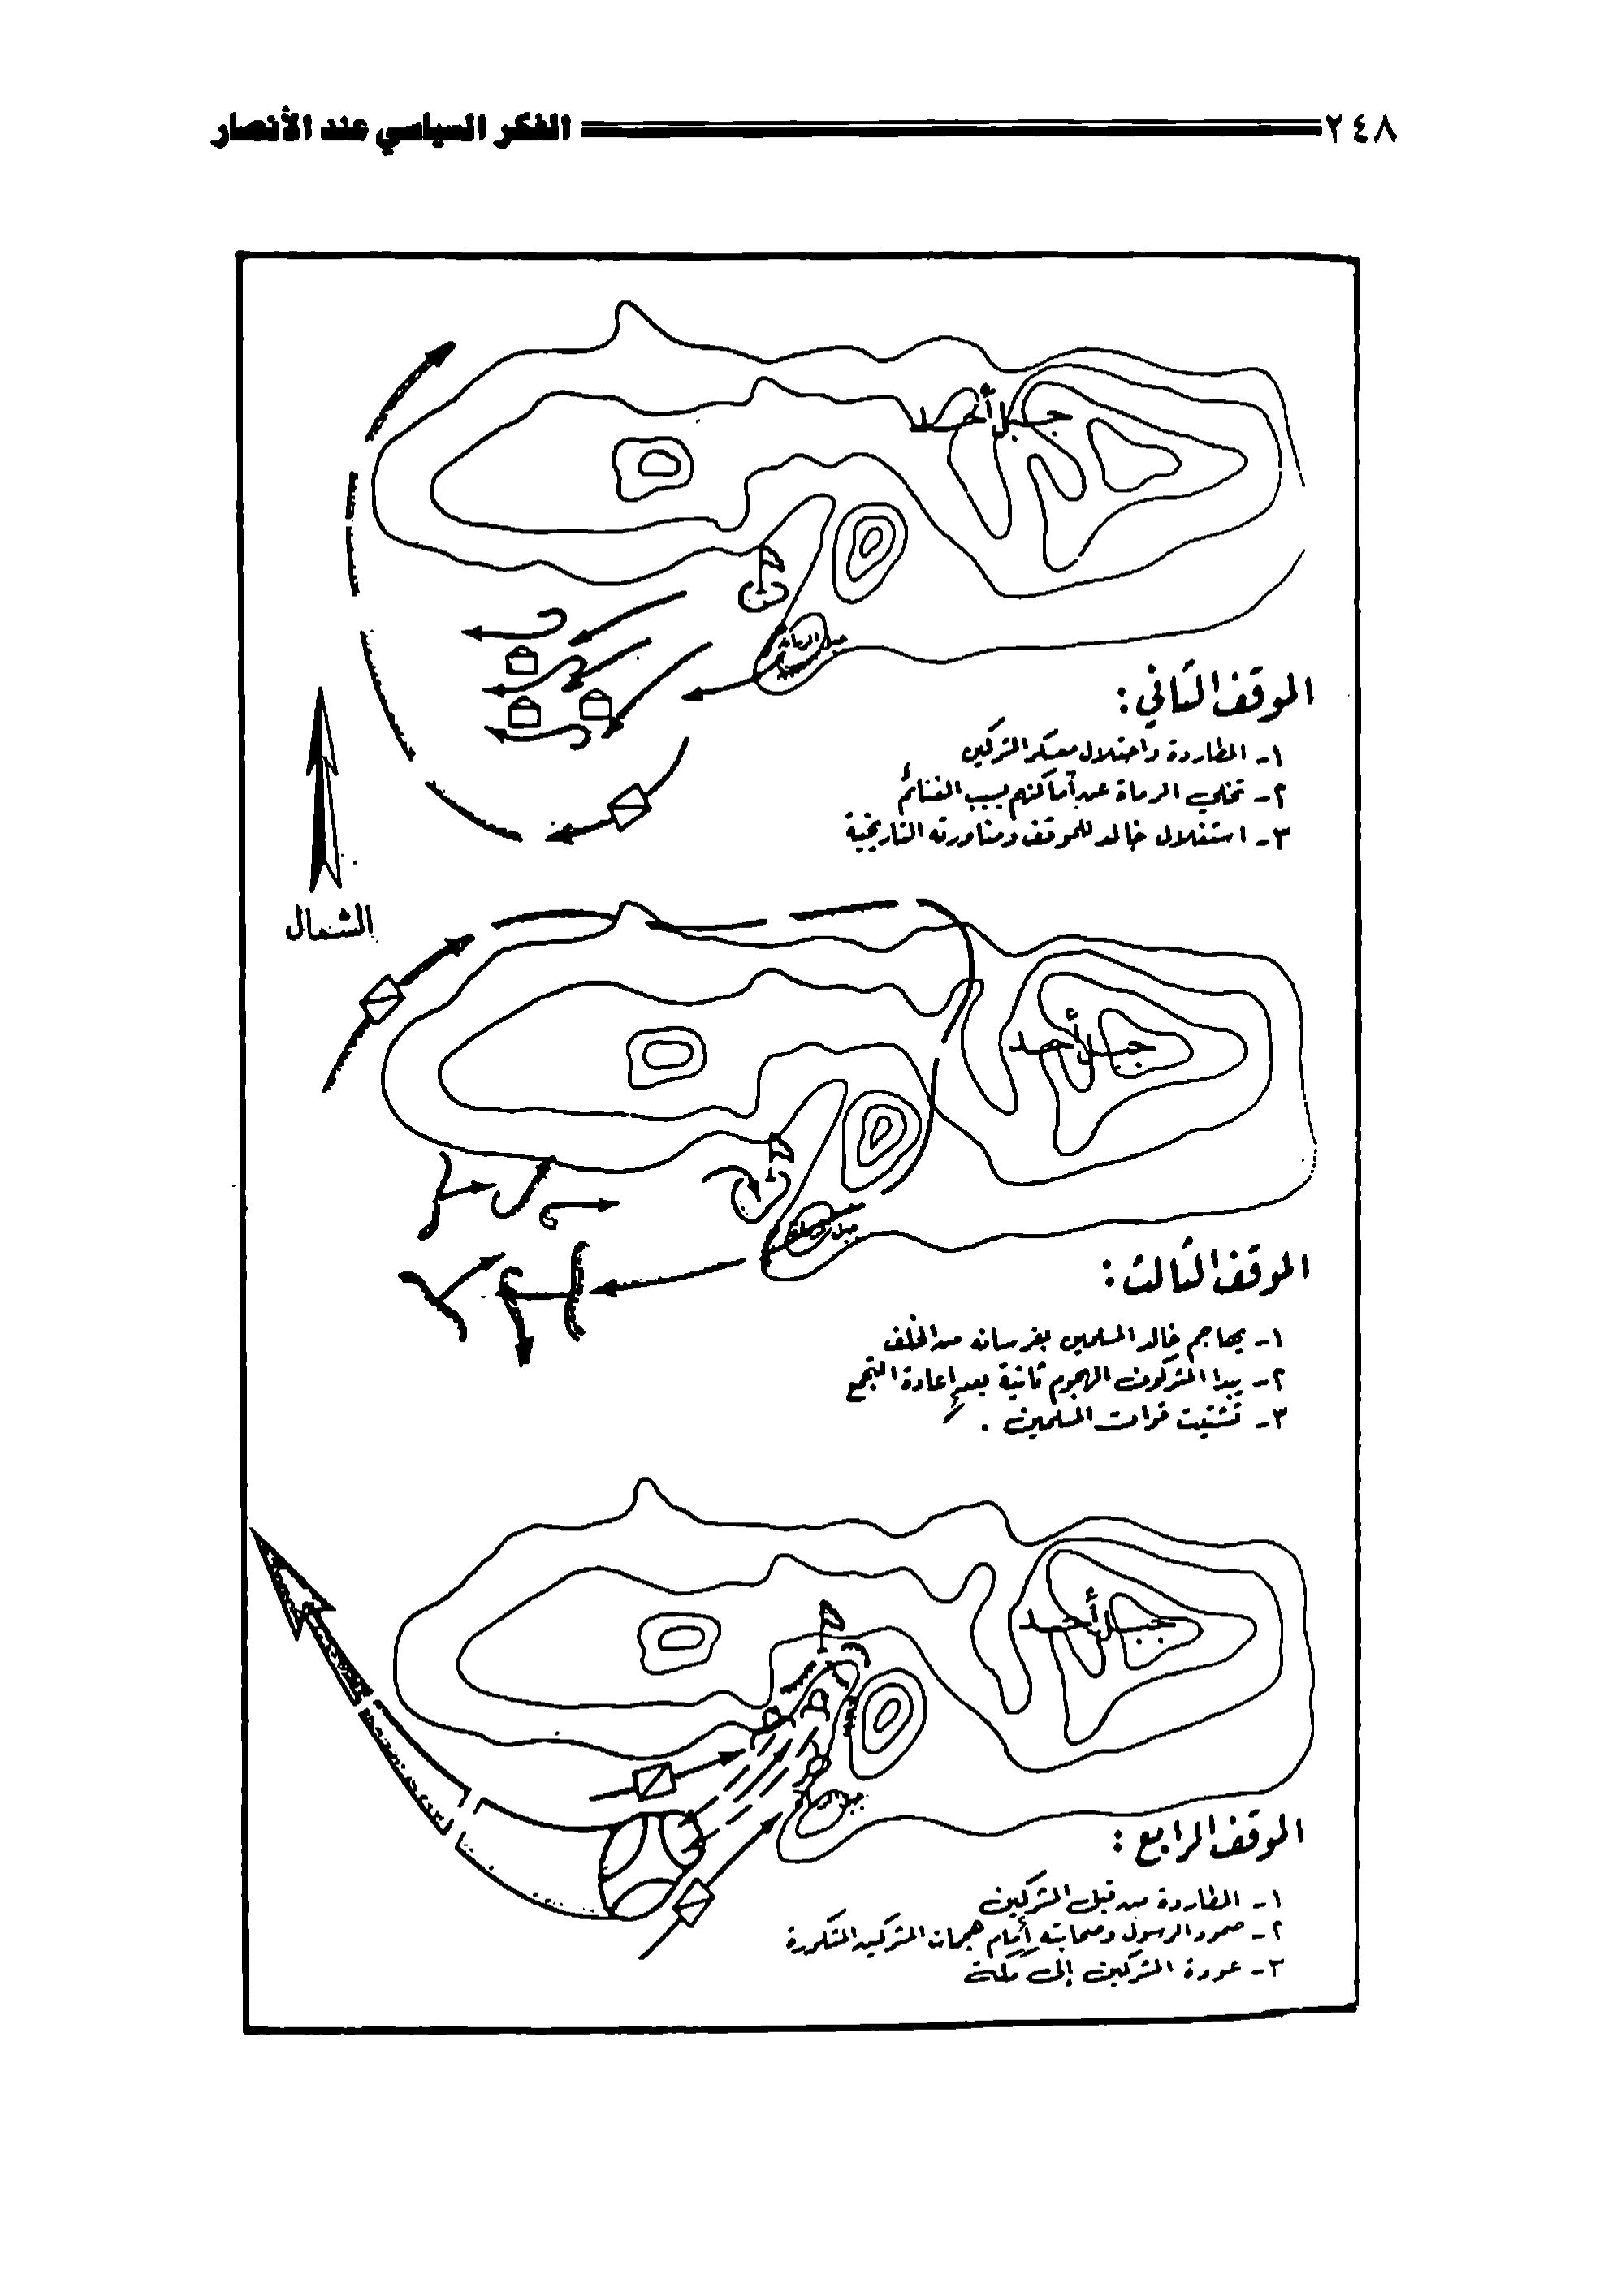 ٢٤٨ الفكر السياسي عند الأنصار
جبل أحد
جبل الرماة
الموقف الثاني:
١- المطاردة واحتلال معسكر المشركين
٢- تخلي الرماة عن أماكنهم بسبب الغنائم
٣- استغلال خالد للموقف ومناورته التاريخية
الشمال
جبل أحد
جبل الرماة
الموقف الثالث:
١- يهاجم خالد المسلمين بفرسانه من الخلف
٢- يبدا المشركون الهجوم ثانية بعد إعادة التجمع
٣- تشتيت قوات المسلمين.
جبل أحد
جبل
الموقف الرابع:
١- المطاردة من قبل المشركين
٢- صمود الرسول وصحابته أمام هجمات المشركين المتكررة
٣- عودة المشركين إلى مكة